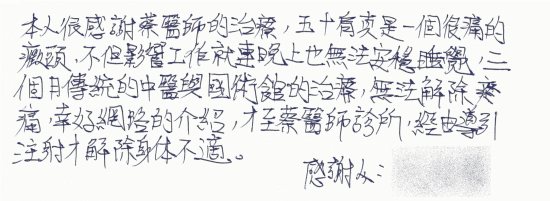 本人很感謝蔡醫師的治療，五十肩真是一個很痛的
癥頭，不但影響工作就連晚上也無法安穩睡覺，三
個月傳統的中醫與國術館的治療，無法解除疼
痛，幸好網路的介紹，才至蔡醫師診所，經由導引
注射才解除身体不適。
感謝人：